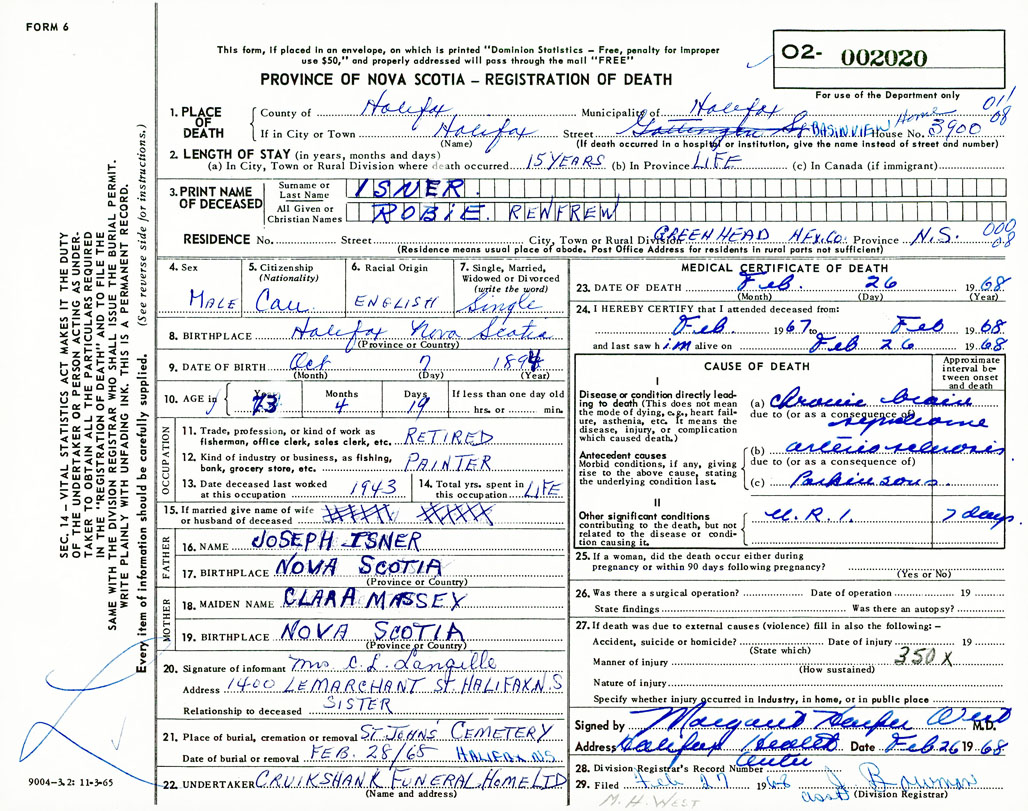 FORM 6
This form, if placed in an envelope, on which is printed "Dominion Statistics – Free, penalty for improper
use $50," and properly addressed will pass through the mail "FREE"
PROVINCE OF NOVA SCOTIA – REGISTRATION OF DEATH
02- 002020
For use of the Department only
1. PLACE OF DEATH
County of Halifax Municipality of Halifax 011 08
If in City or Town Halifax Street Gottingen St BASINVIEW Home House No. 3900
(Name) (If death occurred in a hospital or institution, give the name instead of street and number)
2. LENGTH OF STAY (in years, months and days)
(a) In City, Town or Rural Division where death occurred 15 YEARS (b) In Province LIFE (c) In Canada (if immigrant)
3. PRINT NAME OF DECEASED
Surname or Last Name ISNER.
All Given or Christian Names ROBIE. RENFREW
RESIDENCE No. Street City, Town or Rural Division GREENHEAD HFX.CO. Province N.S. 000 08
(Residence means usual place of abode. Post Office Address for residents in rural parts not sufficient)
4. Sex MALE
5. Citizenship (Nationality) Can
6. Racial Origin ENGLISH
7. Single, Married, Widowed or Divorced (write the word) Single
8. BIRTHPLACE Halifax Nova Scotia
(Province or Country)
9. DATE OF BIRTH Oct 7 1894
(Month) (Day) (Year)
10. AGE in Years 73 Months 4 Days 19 If less than one day old hrs. or min.
OCCUPATION
11. Trade, profession, or kind of work as fisherman, office clerk, sales clerk, etc. RETIRED
12. Kind of industry or business, as fishing, bank, grocery store, etc. PAINTER
13. Date deceased last worked at this occupation 1943
14. Total yrs. spent in this occupation LIFE
15. If married give name of wife or husband of deceased
FATHER
16. NAME JOSEPH ISNER
17. BIRTHPLACE NOVA SCOTIA
(Province or Country)
MOTHER
18. MAIDEN NAME CLARA MASSEY
19. BIRTHPLACE NOVA SCOTIA
(Province or Country)
20. Signature of informant Mrs C. L. Langille
Address 1400 LEMARCHANT ST. HALIFAX N.S
Relationship to deceased SISTER
21. Place of burial, cremation or removal ST. JOHN'S CEMETERY
Date of burial or removal FEB. 28/68 HALIFAX N.S.
22. UNDERTAKER CRUIKSHANK FUNERAL HOME LTD
(Name and address)
MEDICAL CERTIFICATE OF DEATH
23. DATE OF DEATH Feb. 26 1968
(Month) (Day) (Year)
24. I HEREBY CERTIFY that I attended deceased from:
Feb. 1967 to Feb 1968
and last saw him alive on Feb 26 1968
CAUSE OF DEATH
Approximate interval between onset and death
I
Disease or condition directly leading to death (This does not mean the mode of dying, e.g., heart failure, asthenia, etc. It means the disease, injury, or complication which caused death.)
(a) chronic brain
due to (or as a consequence of)
syndrome
Antecedent causes
Morbid conditions, if any, giving rise to the above cause, stating the underlying condition last.
(b) arteriosclerosis
due to (or as a consequence of)
(c) Parkinsons
II
Other significant conditions contributing to the death, but not related to the disease or condition causing it.
U.R.I. 7 days
25. If a woman, did the death occur either during pregnancy or within 90 days following pregnancy?
(Yes or No)
26. Was there a surgical operation? Date of operation 19
State findings Was there an autopsy?
27. If death was due to external causes (violence) fill in also the following:–
Accident, suicide or homicide? Date of injury 19
(State which)
Manner of injury 350 X
(How sustained)
Nature of injury
Specify whether injury occurred in Industry, in home, or in public place
Signed by Margaret Harper West M.D.
Address Halifax Health Date Feb 26 1968
Center
28. Division Registrar's Record Number
29. Filed Feb 27 1968 J Bowman
asst (Division Registrar)
M. H. WEST
SEC. 14 – VITAL STATISTICS ACT MAKES IT THE DUTY
OF THE UNDERTAKER OR PERSON ACTING AS UNDER-
TAKER TO OBTAIN ALL THE PARTICULARS REQUIRED
IN THE "REGISTRATION OF DEATH" AND TO FILE THE
SAME WITH THE DIVISION REGISTRAR WHO SHALL ISSUE THE BURIAL PERMIT.
WRITE PLAINLY WITH UNFADING INK. THIS IS A PERMANENT RECORD.
Every item of information should be carefully supplied. (See reverse side for instructions.)
9004-3.2: 11-3-65